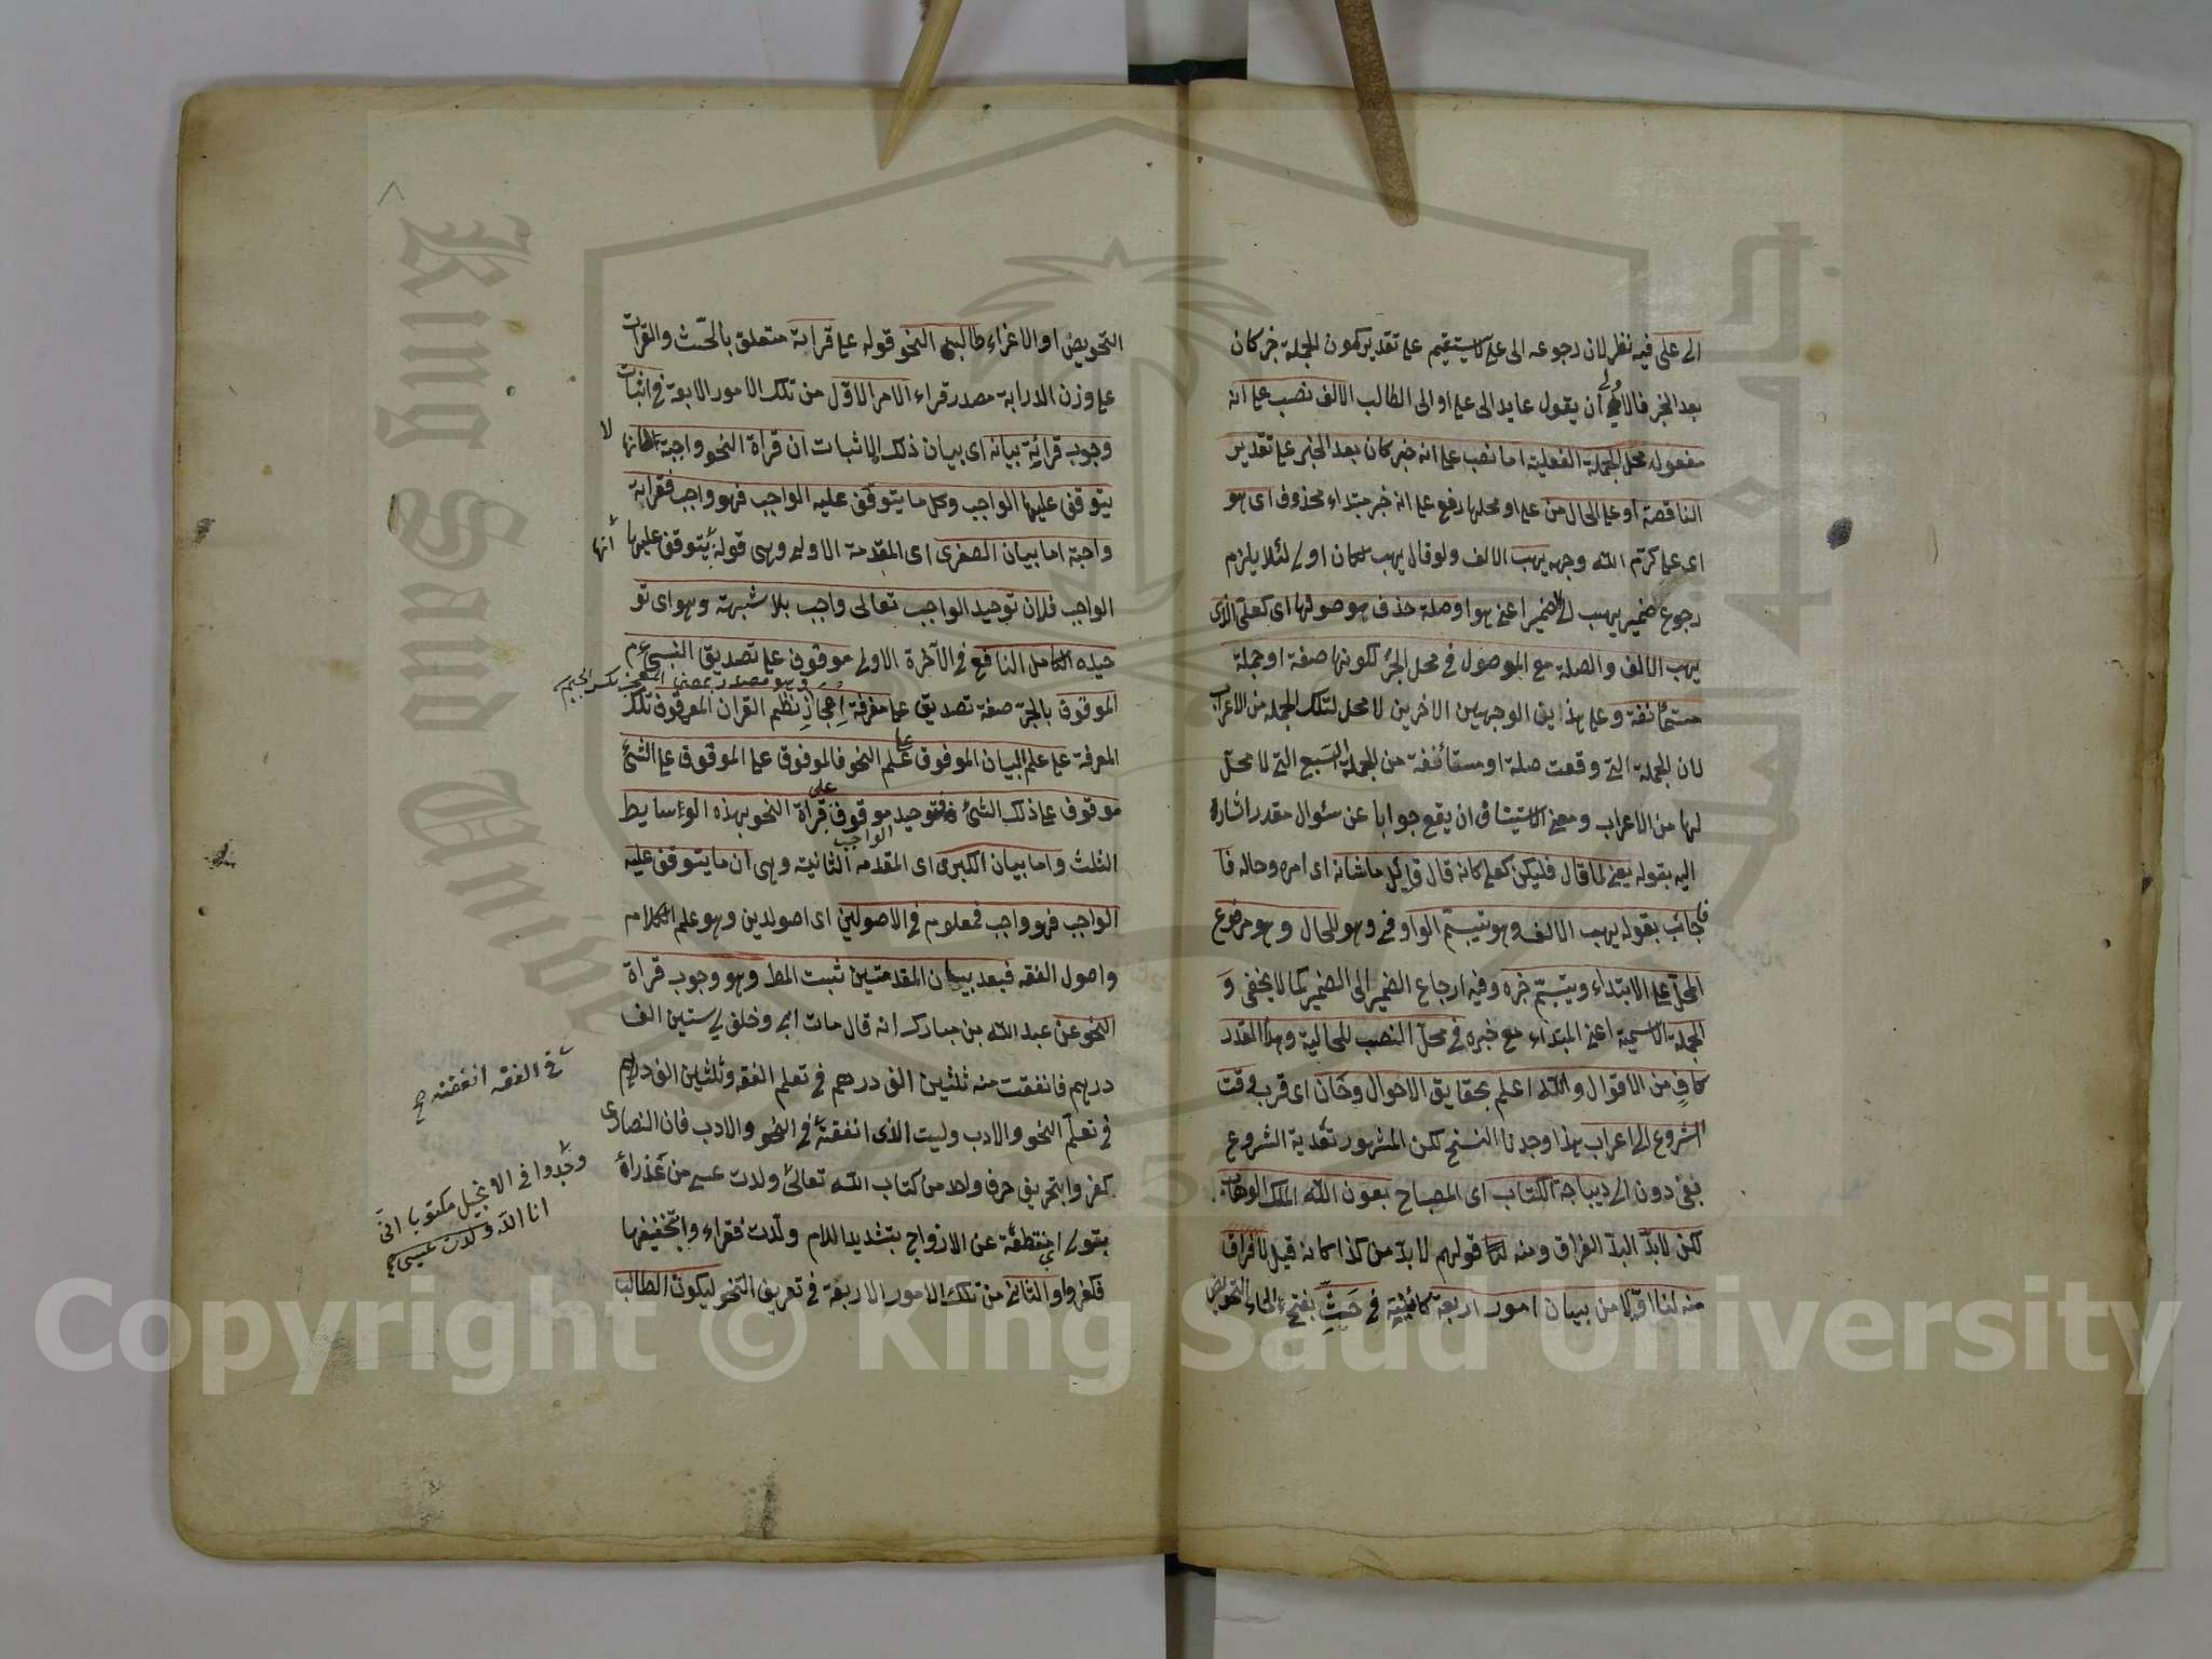 الى على فيه نظر لان رجوعه الى على لا يستقيم على تقدير كون الجملة خبر كان
بعد الخبر فالاولى ان يقول عايد الى على او الى الطالب الالف نصب على انه
مفعوله محل الجملة الفعلية اما نصب على انه خبر كان بعد الخبر على تقدير
الناقصة او على الحال من على او محلها رفع على انه خبر مبتداء محذوف اى هو
اى على كرّم الله وجهه يهب الالف ولو قال يهب لكان اولى لئلا يلزم
رجوع ضمير يهب الى الضمير اعنى هو او صلة حذف موصولها اى كعلى الذى
يهب الالف والصلة مع الموصول فى محل الجرّ لكونها صفة او جملة
مستأنفة وعلى هذاين الوجهين الاخرين لا محل لتلك الجملة من الاعراب
لان الجملة التى وقعت صلة او مستأنفة من الجملة السبع التى لا محلّ
لها من الاعراب ومعنى الاستيناف ان يقع جوابا عن سئوال مقدر اشارة
اليه بقوله يعنى لما قال فليكن كعلى كانه قال قائل ما شانه اى امره وحاله فا
فاجاب بقوله يهب الالف وهو يتبسّم الواو فى وهو للحال وهو مرفوع
المحلّ على الابتداء ويتبسّم خبره وفيه ارجاع الضمير الى الضمير كما لا يخفى وَ
الجملة الاسمية اعنى المبتداء مع خبره فى محلّ النصب للحالية وهذا القدر
كافٍ من الاقوال والله اعلم بحقايق الاحوال وحَان اى قرب وقت
الشروع الى اعراب هذا وجدنا النسخ لكن المشهور تعدية الشروع
بفى دون الى ديباجة الكتاب اى المصباح بعون الله الملك الوهاب
لكن لابدّ البدّ الفراق ومنه قولهم لا بدّ من كذا كانه قيل لا فراق
منه لنا اوّلا من بيان امور اربعة كائنية فى حَثِّ بفتح الحاء التحريض
التحريض او الاغراء طالب النحو قوله على قراية متعلق بالحّث والقرات
على وزن الدراية مصدر قراء الامر الاوّل من تلك الامور الاربعة فى اثبات
وجوب قرائة بيانه اى بيان ذلك الاثبات ان قراة النحو واجبة لانها
لا
يتوقف عليها الواجب وكل ما يتوقف عليه الواجب فهو واجب فقراية
واجبة اما بيان الصغرى اى المقدمة الاولى وهى قوله يتوقف عليها
انها
الواجب فلان توحيد الواجب تعالى واجب بلا شبهة وهو اى تو
حيده الكامل النافع فى الآخرة الاولى موقوف على تصديق النبىءم
وهو مصدر بمعنى المعجز بكسر الجيم
الموقوف بالجرّ صفة تصديق على معرفة اِعجازِ نظم القران المعرفوة تلك
المعرفة على علم البيان الموقوف على علم النحو فالموقوف على الموقوف على الشئ
موقوف على ذلك الشئ فتوحيد الواجب موقوف على قراة النحو بهذه الوءسايط
الثلث واما بيان الكبرى اى المقدمه الثانية وهى ان ما يتوقف عليه
الواجب فهو واجب فمعلوم فى الاصولين اى اصولدين وهو علم الكلام
واصول الفقه فبعد بيان المقدمتين ثبت المط وهو وجوب قراة
النحو عن عبد الله بن مبارك انه قال مات ابى وخلف لى ستين الف
درهم فانفقت منه ثلثين الف درهم فى تعلم الفقه وثلثين الف درهم
فى الفقه انفقته
فى تعلّم النحو والادب وليت الذى انفقته فى النحو والادب فان النصارى
كفروا بتحريف حرف واحد من كتاب الله تعالى ولدت عيسى من عَذراء
وجدوا فى الانجيل مكتوبا انى
انا الله ولدت عيسى
بقولى منقطعة عن الازواج بتشديد اللام ولدت فقراء وا بتخفيفها
فكفروا والثانى من تلك الامور الاربعة فى تعريف النحو ليكون الطالب
King Saud Unive
Copyright © King Saud University